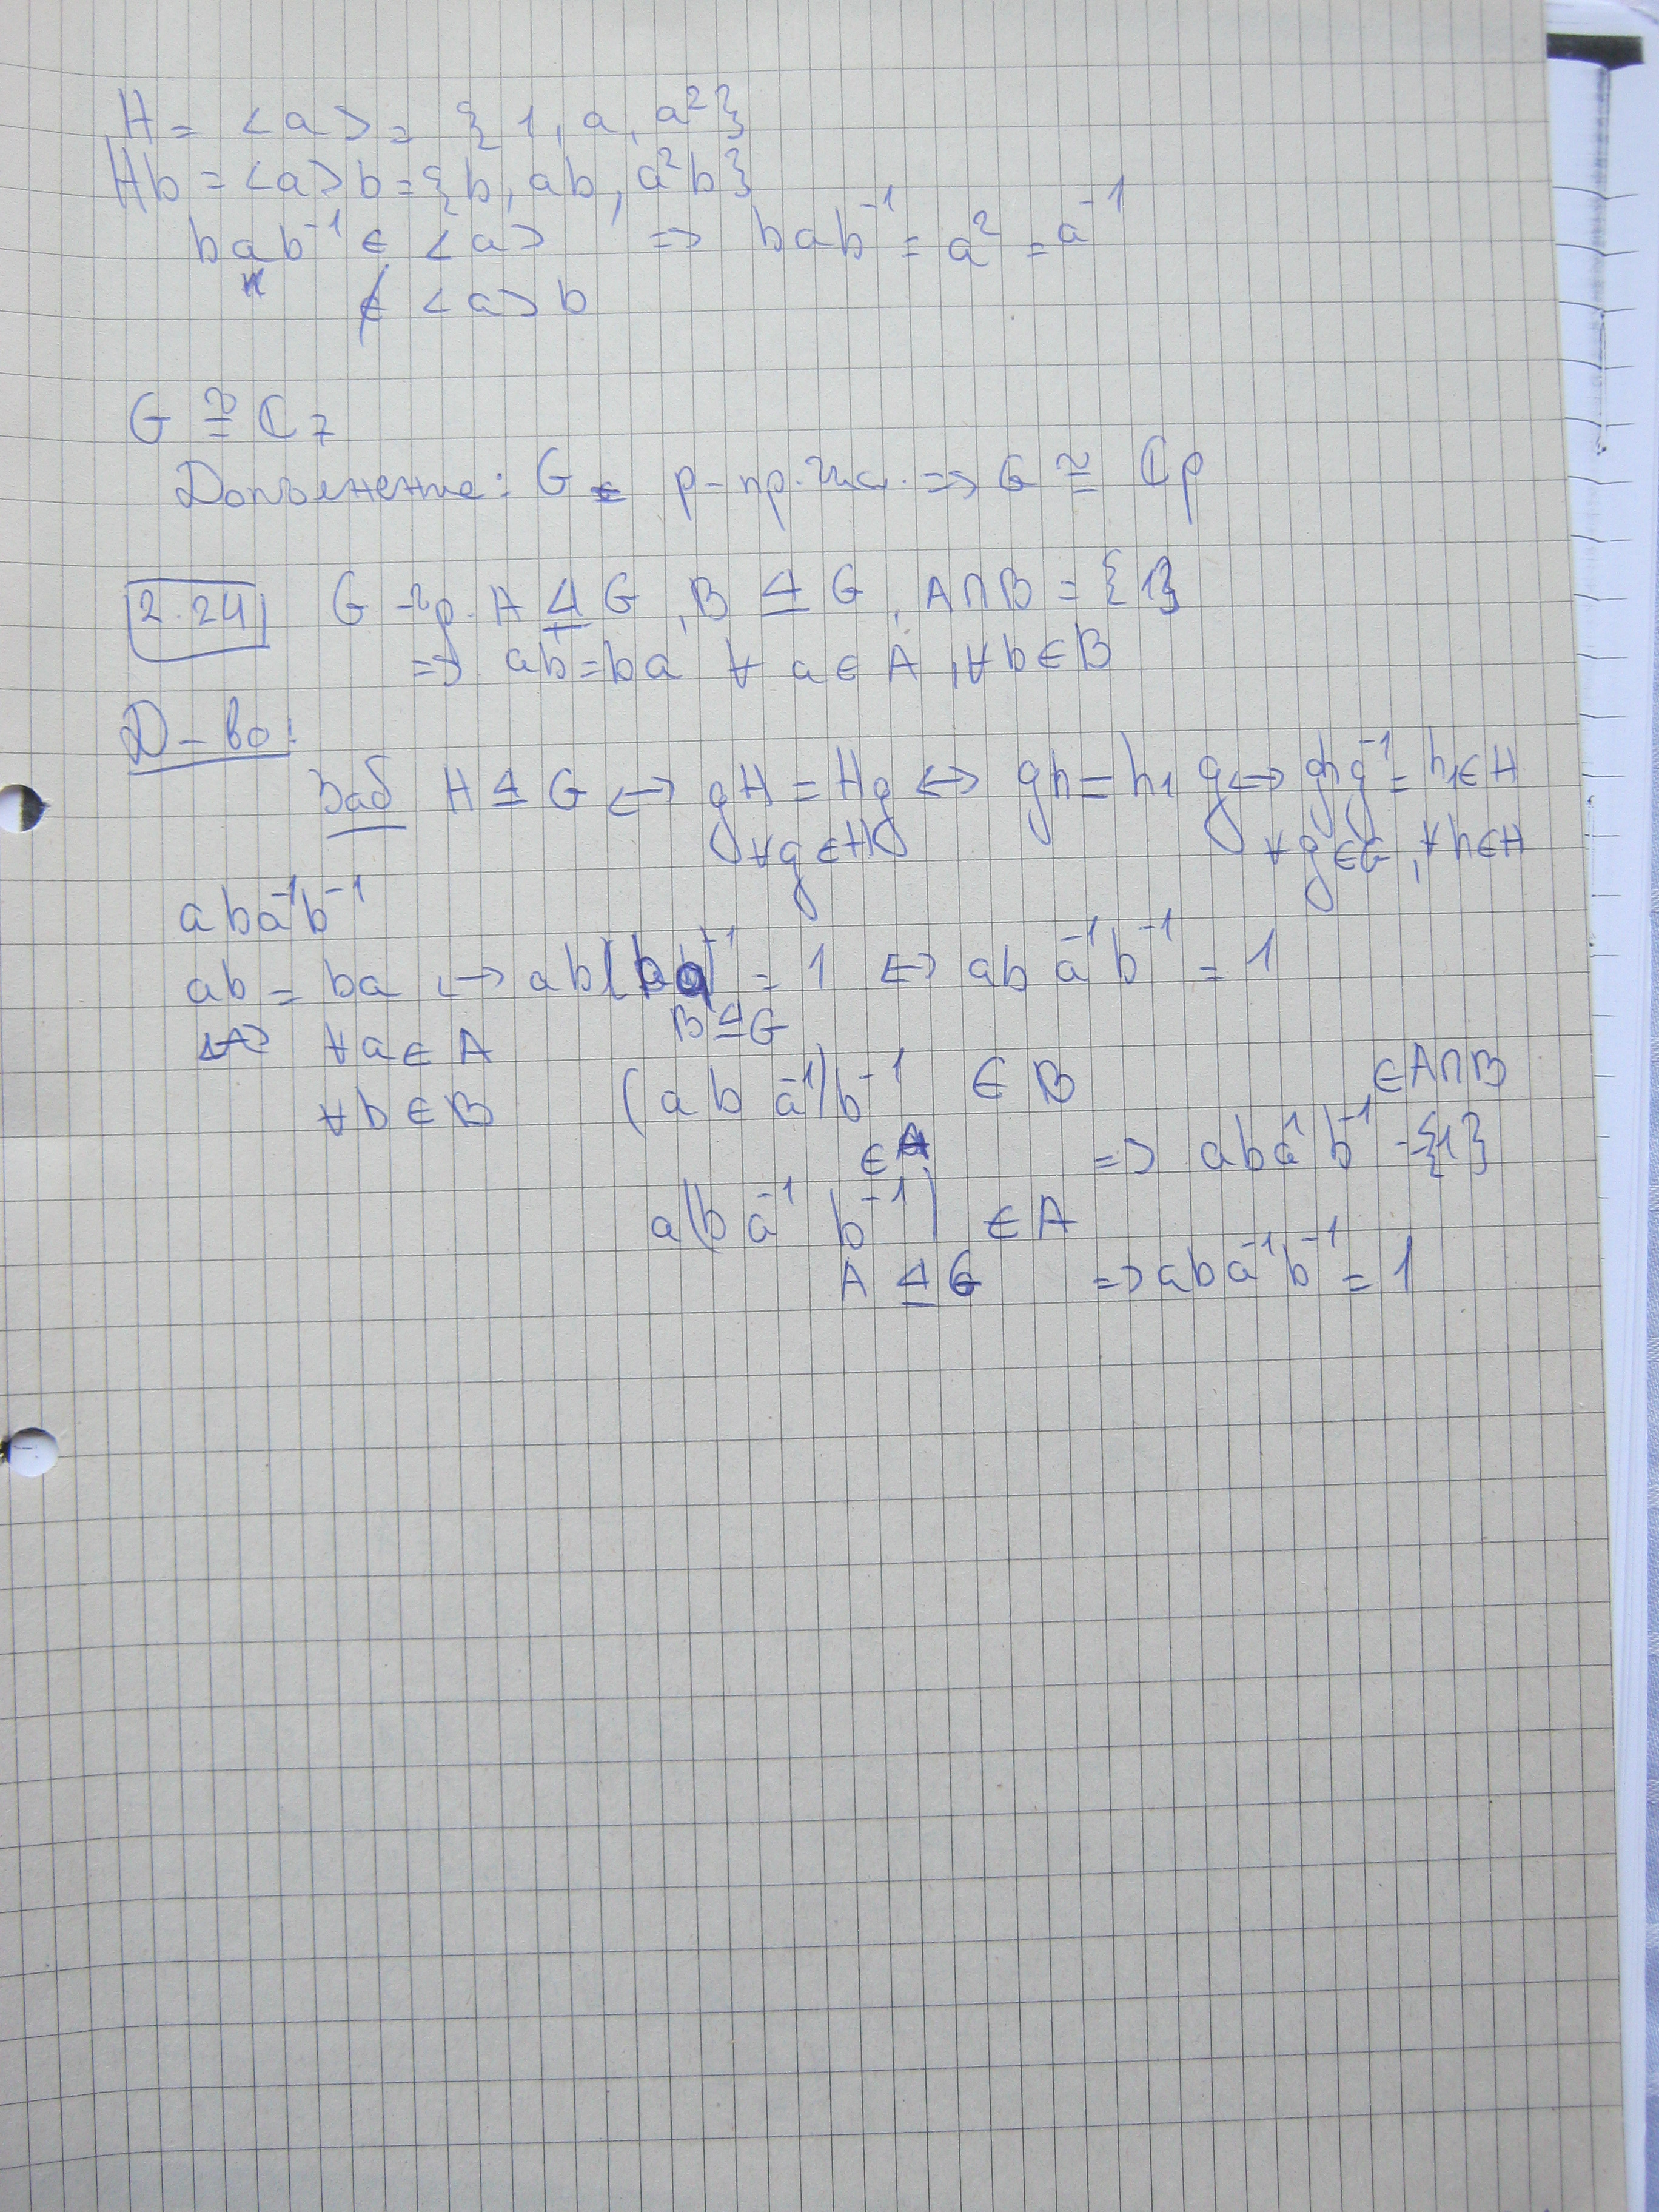 H = <a> = {1, a, a²}
Hb = <a>b = {b, ab, a²b}
bab⁻¹ ∈ <a> => bab⁻¹ = a² = a⁻¹
∉ <a>b
G ≅ C₇
Допълнение: G - p-пр. чис. => G ≅ Cp
2.24 G -гр. A ⊴ G, B ⊴ G, A∩B = {1}
=> ab = ba ∀ a ∈ A, ∀b ∈ B
Д-во:
Заб H ⊴ G <-> gH = Hg <-> gh = h₁g <-> ghg⁻¹ = h₁ ∈ H
∀g ∈ H ∀g ∈ G, ∀h ∈ H
aba⁻¹b⁻¹
ab = ba <-> ab(ba)⁻¹ = 1 <=> aba⁻¹b⁻¹ = 1
∀a ∈ A B ⊴ G
∀b ∈ B (aba⁻¹)b⁻¹ ∈ B ∈ A∩B
∈ A => aba⁻¹b⁻¹ = {1}
a(ba⁻¹b⁻¹) ∈ A
A ⊴ G => aba⁻¹b⁻¹ = 1